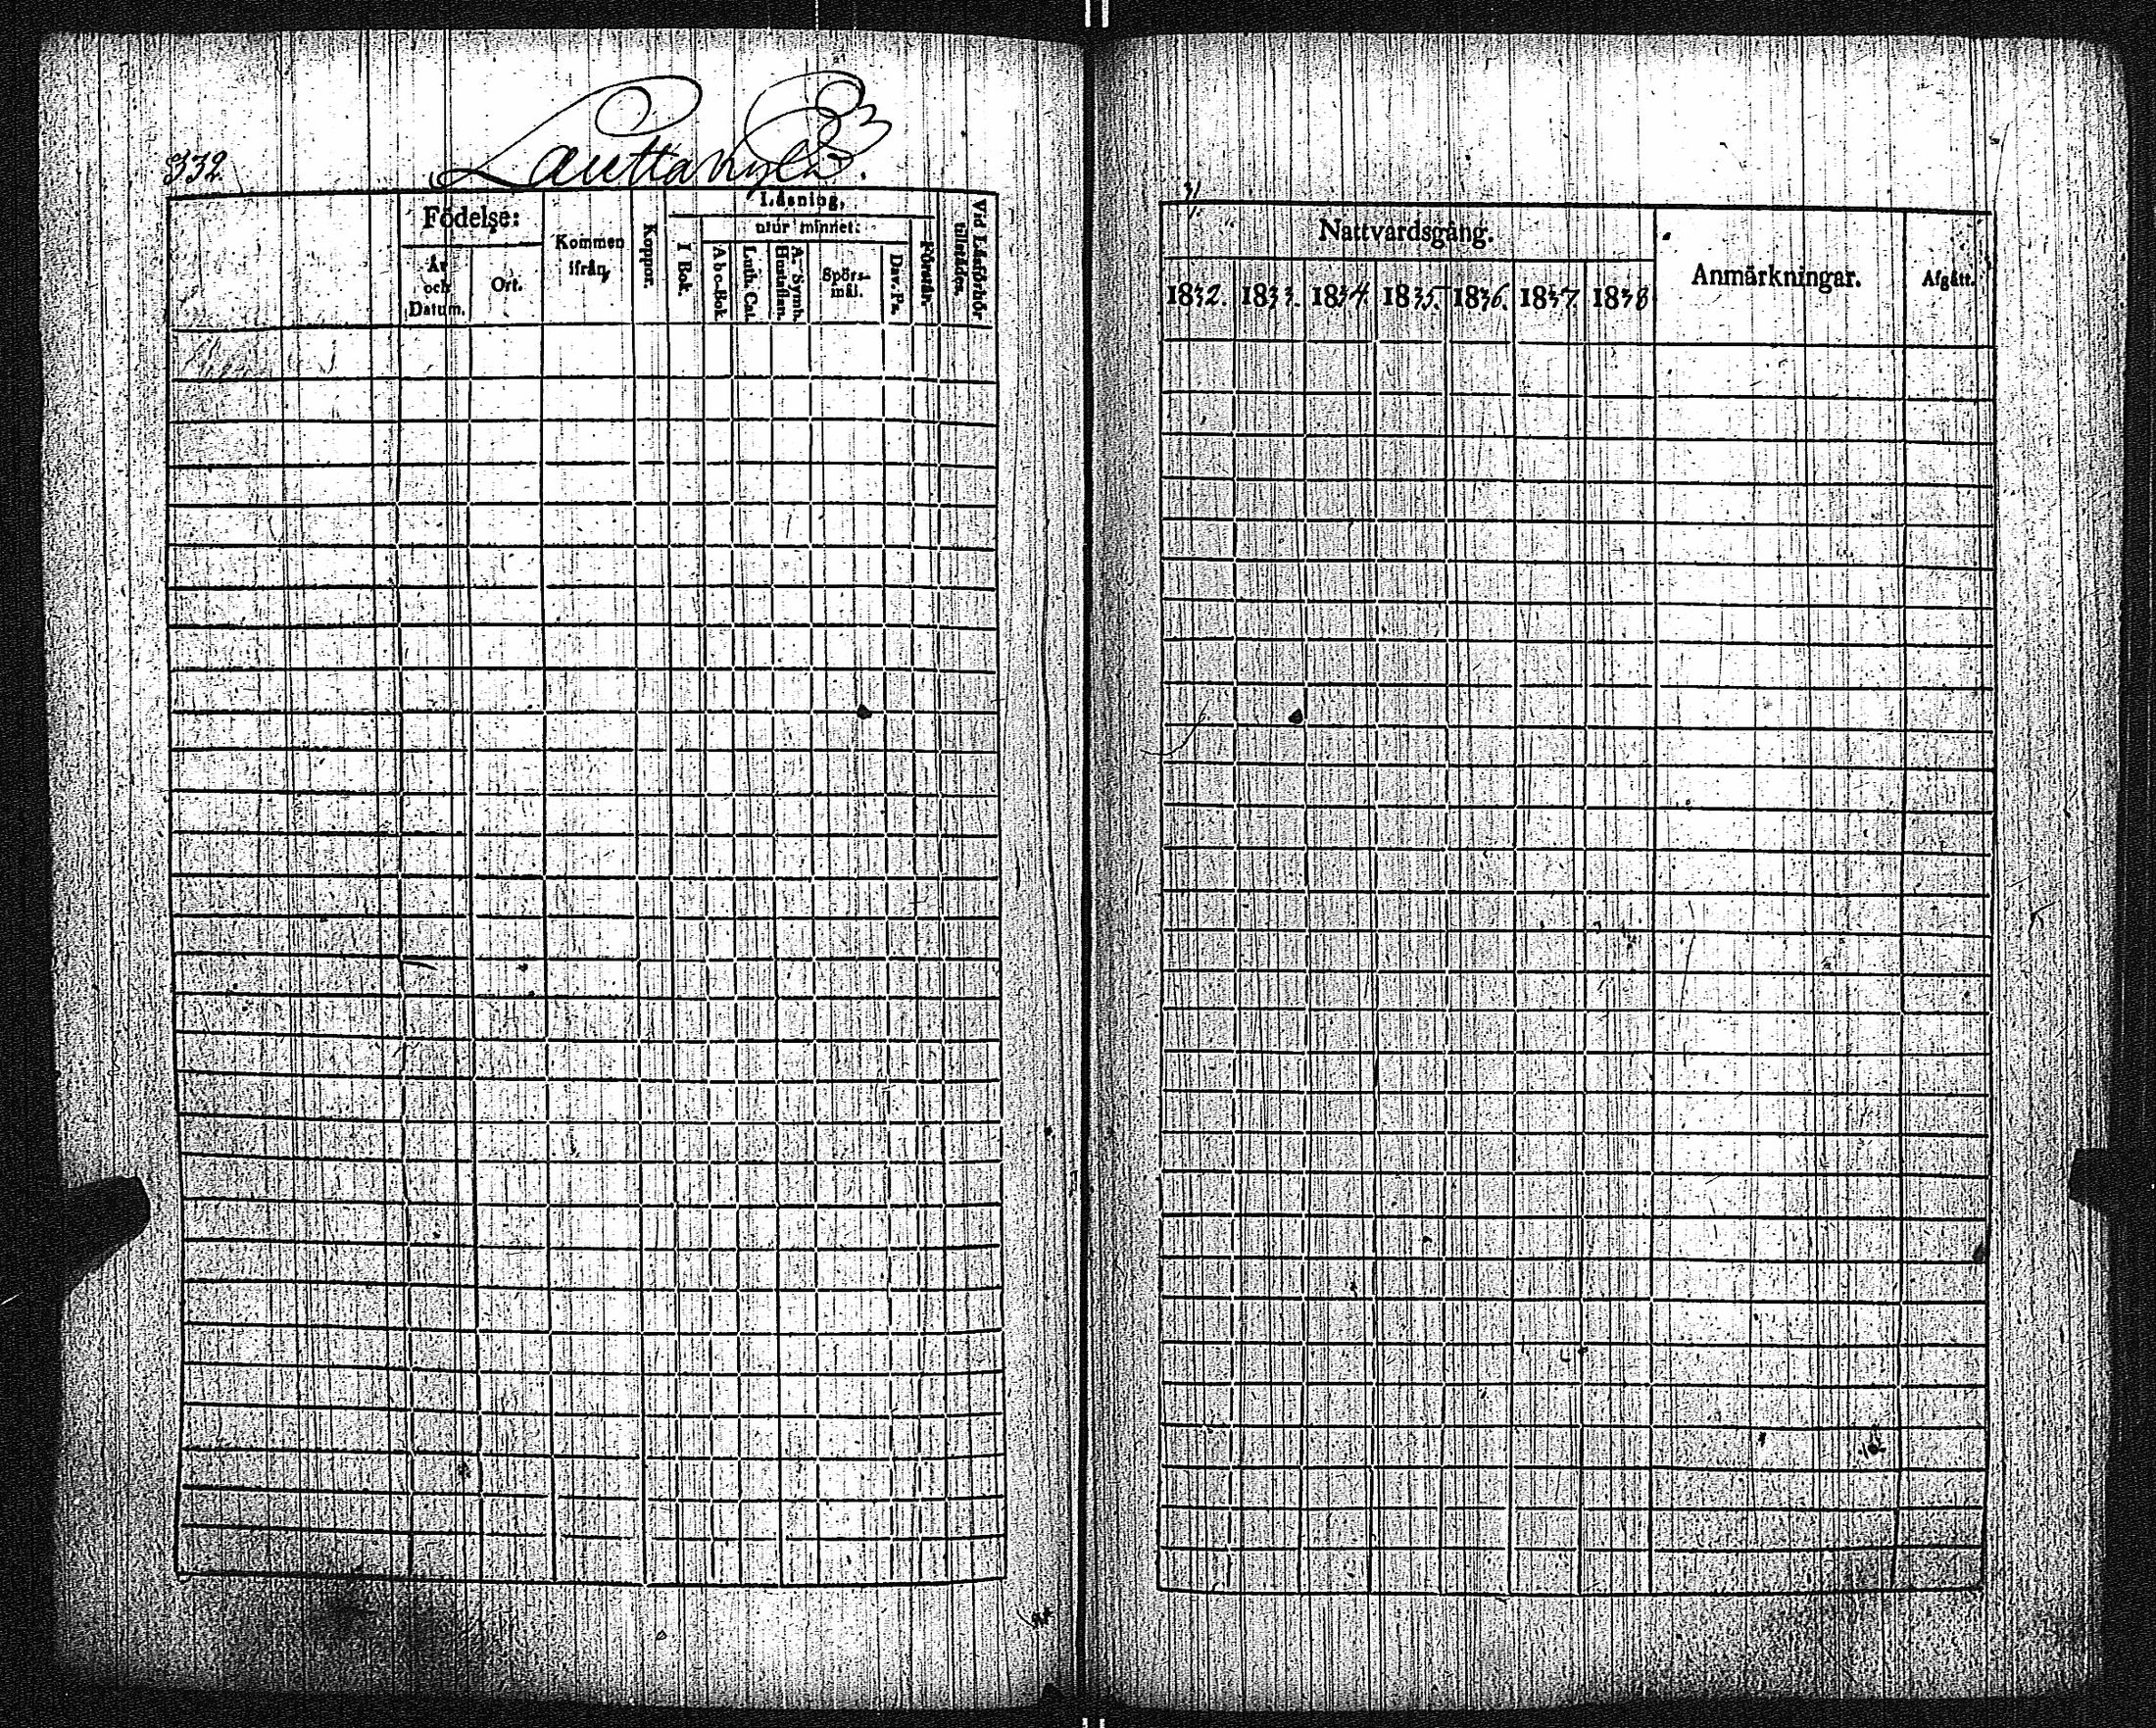 332.
Lauttakylä.
Födelse:
År och Datum.
Ort.
Kommen ifrån,
Koppor.
Läsning,
I Bok.
utur minnet:
Abc-Bok
Luth. Cat.
A. Symb. Hustaflan.
Spörs-mål.
Dav. Ps.
Förstår.
Vid Läsförhör tilstädes.
Nattvardsgång.
1832. 1833. 1834. 1835. 1836. 1837. 1838
Anmärkningar.
Afgått.